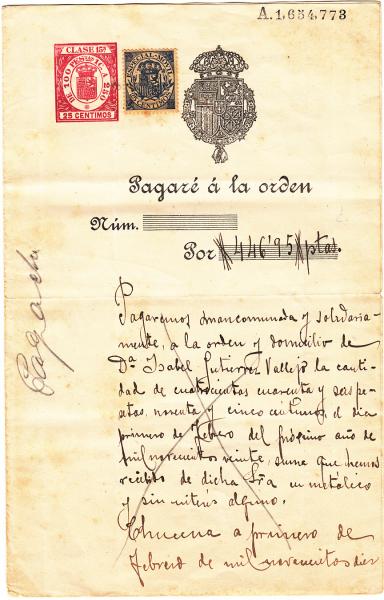 A.1,654,773
CLASE 15ª
DE 100 PESETAS Á 250
25 CENTIMOS
ESPECIAL MOVIL
CENTIMOS
Pagaré á la orden
Núm.
Por #446'95# ptas.
Pagada
Pagaremos mancomunada y solidaria-
mente, a la orden y domicilio de
Dª Isabel Gutierrez Vallejo la canti-
dad de cuatrocientas cuarenta y seis pe-
setas, noventa y cinco centimos, el dia
primero de Febrero del próximo año de
mil novecientos veinte, suma que hemos
recibido de dicha Sra en metálico
y sin interés alguno.
Chucena a primero de
Febrero de mil novecientos diez